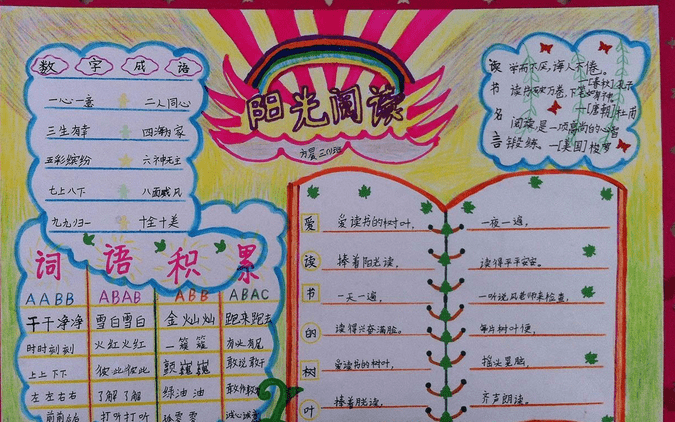 数字成语
一心一意 二人同心
三生有幸 四海为家
五彩缤纷 六神无主
七上八下 八面威风
九九归一 十全十美
阳光阅读
方晨 三(1)班
读书名言
学而不厌,诲人不倦。
—[春秋]孔子
读书破万卷,下笔如有神。
—[唐朝]杜甫
阅读是一项高尚的心智
锻练。—[美国]梭罗
词语积累
AABB ABAB ABB ABAC
干干净净 雪白雪白 金灿灿 跑来跑去
时时刻刻 火红火红 一簇簇 有头有尾
上上下下 彼此彼此 颤巍巍 敢说敢干
左左右右 了解了解 绿油油
打听打听 诚心诚意
爱读书的树叶
爱读书的树叶,
捧着阳光读,
一天一遍,
读得兴奋满脸。
爱读书的树叶,
捧着月光读,
一夜一遍,
读得平平安安。
一听说风老师来检查,
每片树叶便,
摇头晃脑,
齐声朗读。